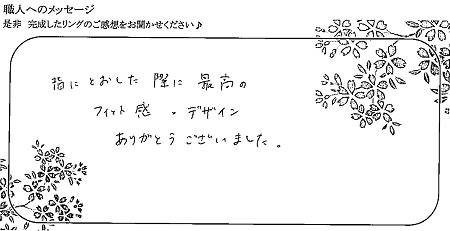 職人へのメッセージ
是非 完成したリングのご感想をお聞かせください♪
指にとおした際に最高の
フィット感・デザイン
ありがとうございました。